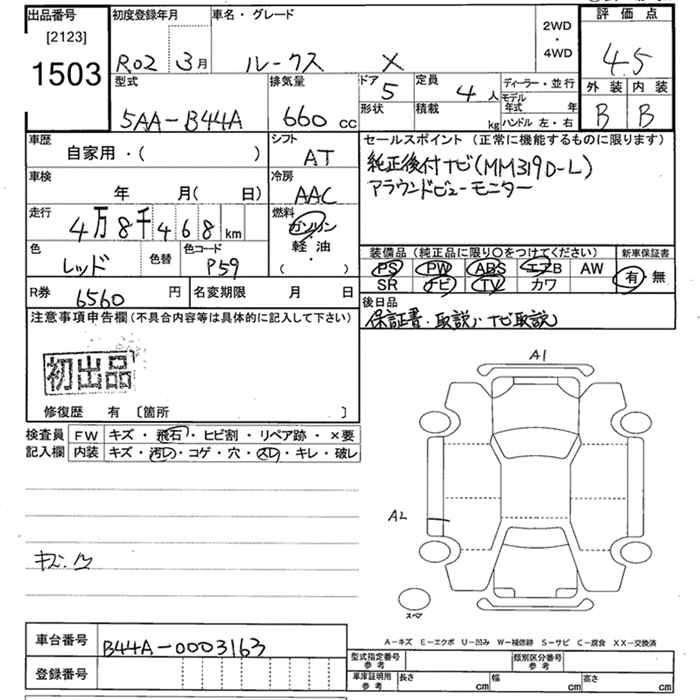 出品番号 初度登録年月 車名・グレード 2WD 評価点
[2123] ・
1503 R02 3月 ルークス X 4WD 4.5
型式 排気量 ドア 5 定員 4人 ディーラー・並行 外装 内装
5AA-B44A 660 cc 形状 積載 kg モデル年式 年 B B
ハンドル 左・右
車歴 シフト セールスポイント(正常に機能するものに限ります)
自家用・( ) AT 純正後付ナビ(MM319D-L)
車検 冷房 アラウンドビューモニター
年 月(日) AAC
走行 燃料
4万8千468km ガソリン
軽油
( )
色 色替 色コード 装備品(純正品に限り○をつけてください) 新車保証書
レッド P59 PS PW ABS エアB AW 有・無
R券 6560円 名変期限 月 日 SR ナビ TV カワ
注意事項申告欄(不具合内容等は具体的に記入して下さい) 後日品
保証書・取説・ナビ取説
初出品
修復歴 有 〔箇所 〕
検査員 FW キズ・飛石・ヒビ割・リペア跡・×要
記入欄 内装 キズ・汚レ・コゲ・穴・スレ・キレ・破レ
A1
A2
キズ・凹
スペア
A-キズ E-エクボ U-凹み W-補修跡 S-サビ C-腐食 XX-交換済
車台番号 B44A-0003163 型式指定番号 参考 類別区分番号 参考
登録番号 車庫証明用 参考 長さ cm 幅 cm 高さ cm